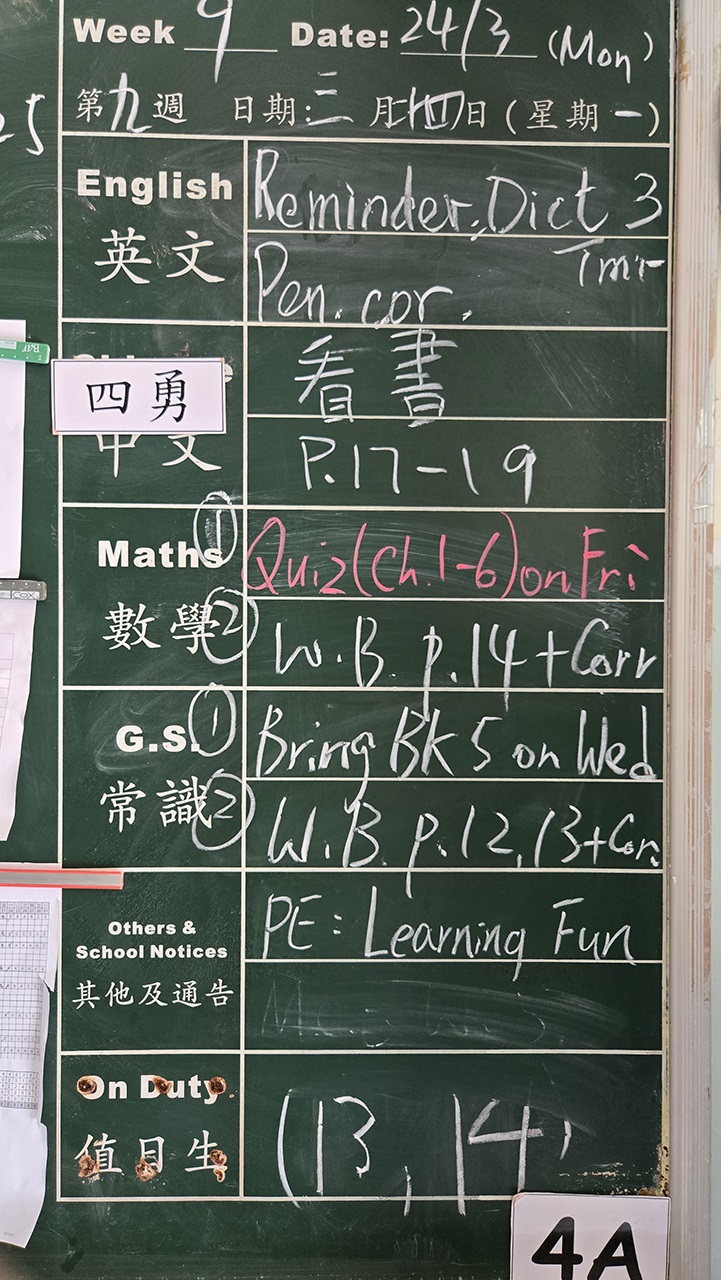 Week 9 Date: 24/3 (Mon)
第九週 日期:三月廿四日(星期一)
English
英文
Reminder: Dict 3
Tmr
Pen. cor.
四勇
中文
看書
P.17-19
Maths
數學
① Quiz(Ch.1-6) on Fri
② W.B. p.14 + Corr
G.S.
常識
① Bring BK 5 on Wed
② W.B. p.12,13+Cor.
Others &
School Notices
其他及通告
PE: Learning Fun
On Duty
值日生
(13, 14)
4A